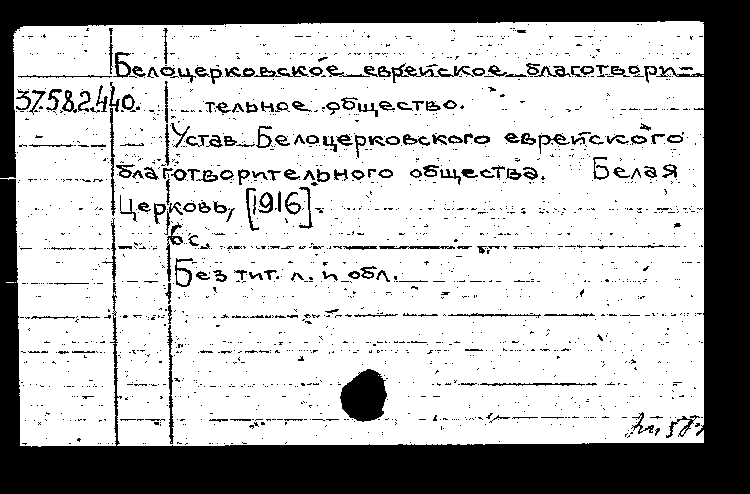 Белоцерковское еврейское благотвори-
37.58.2.440. тельное общество.
Устав Белоцерковского еврейского
благотворительного общества. Белая
Церковь, [1916].
6 с.
Без тит. л. и обл.